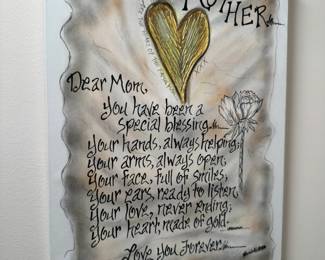 MOTHER
Dear Mom,
You have been a
special blessing.
Your hands, always helping;
Your arms, always open;
Your face, full of smiles,
Your ears, ready to listen,
Your love, never ending;
Your heart, made of gold.
Love You Forever